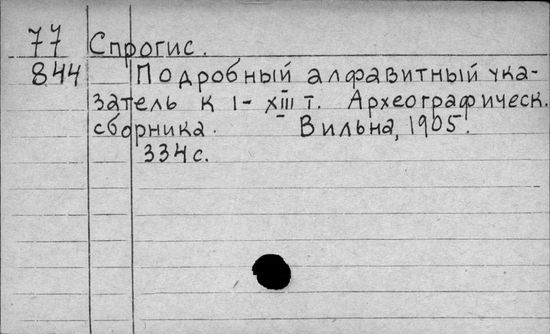 77 Спрогис.
844 Подробный алфавитный ука-
затель к I-XIII т. Археографическ.
сборника. Вильна, 1905.
334 с.